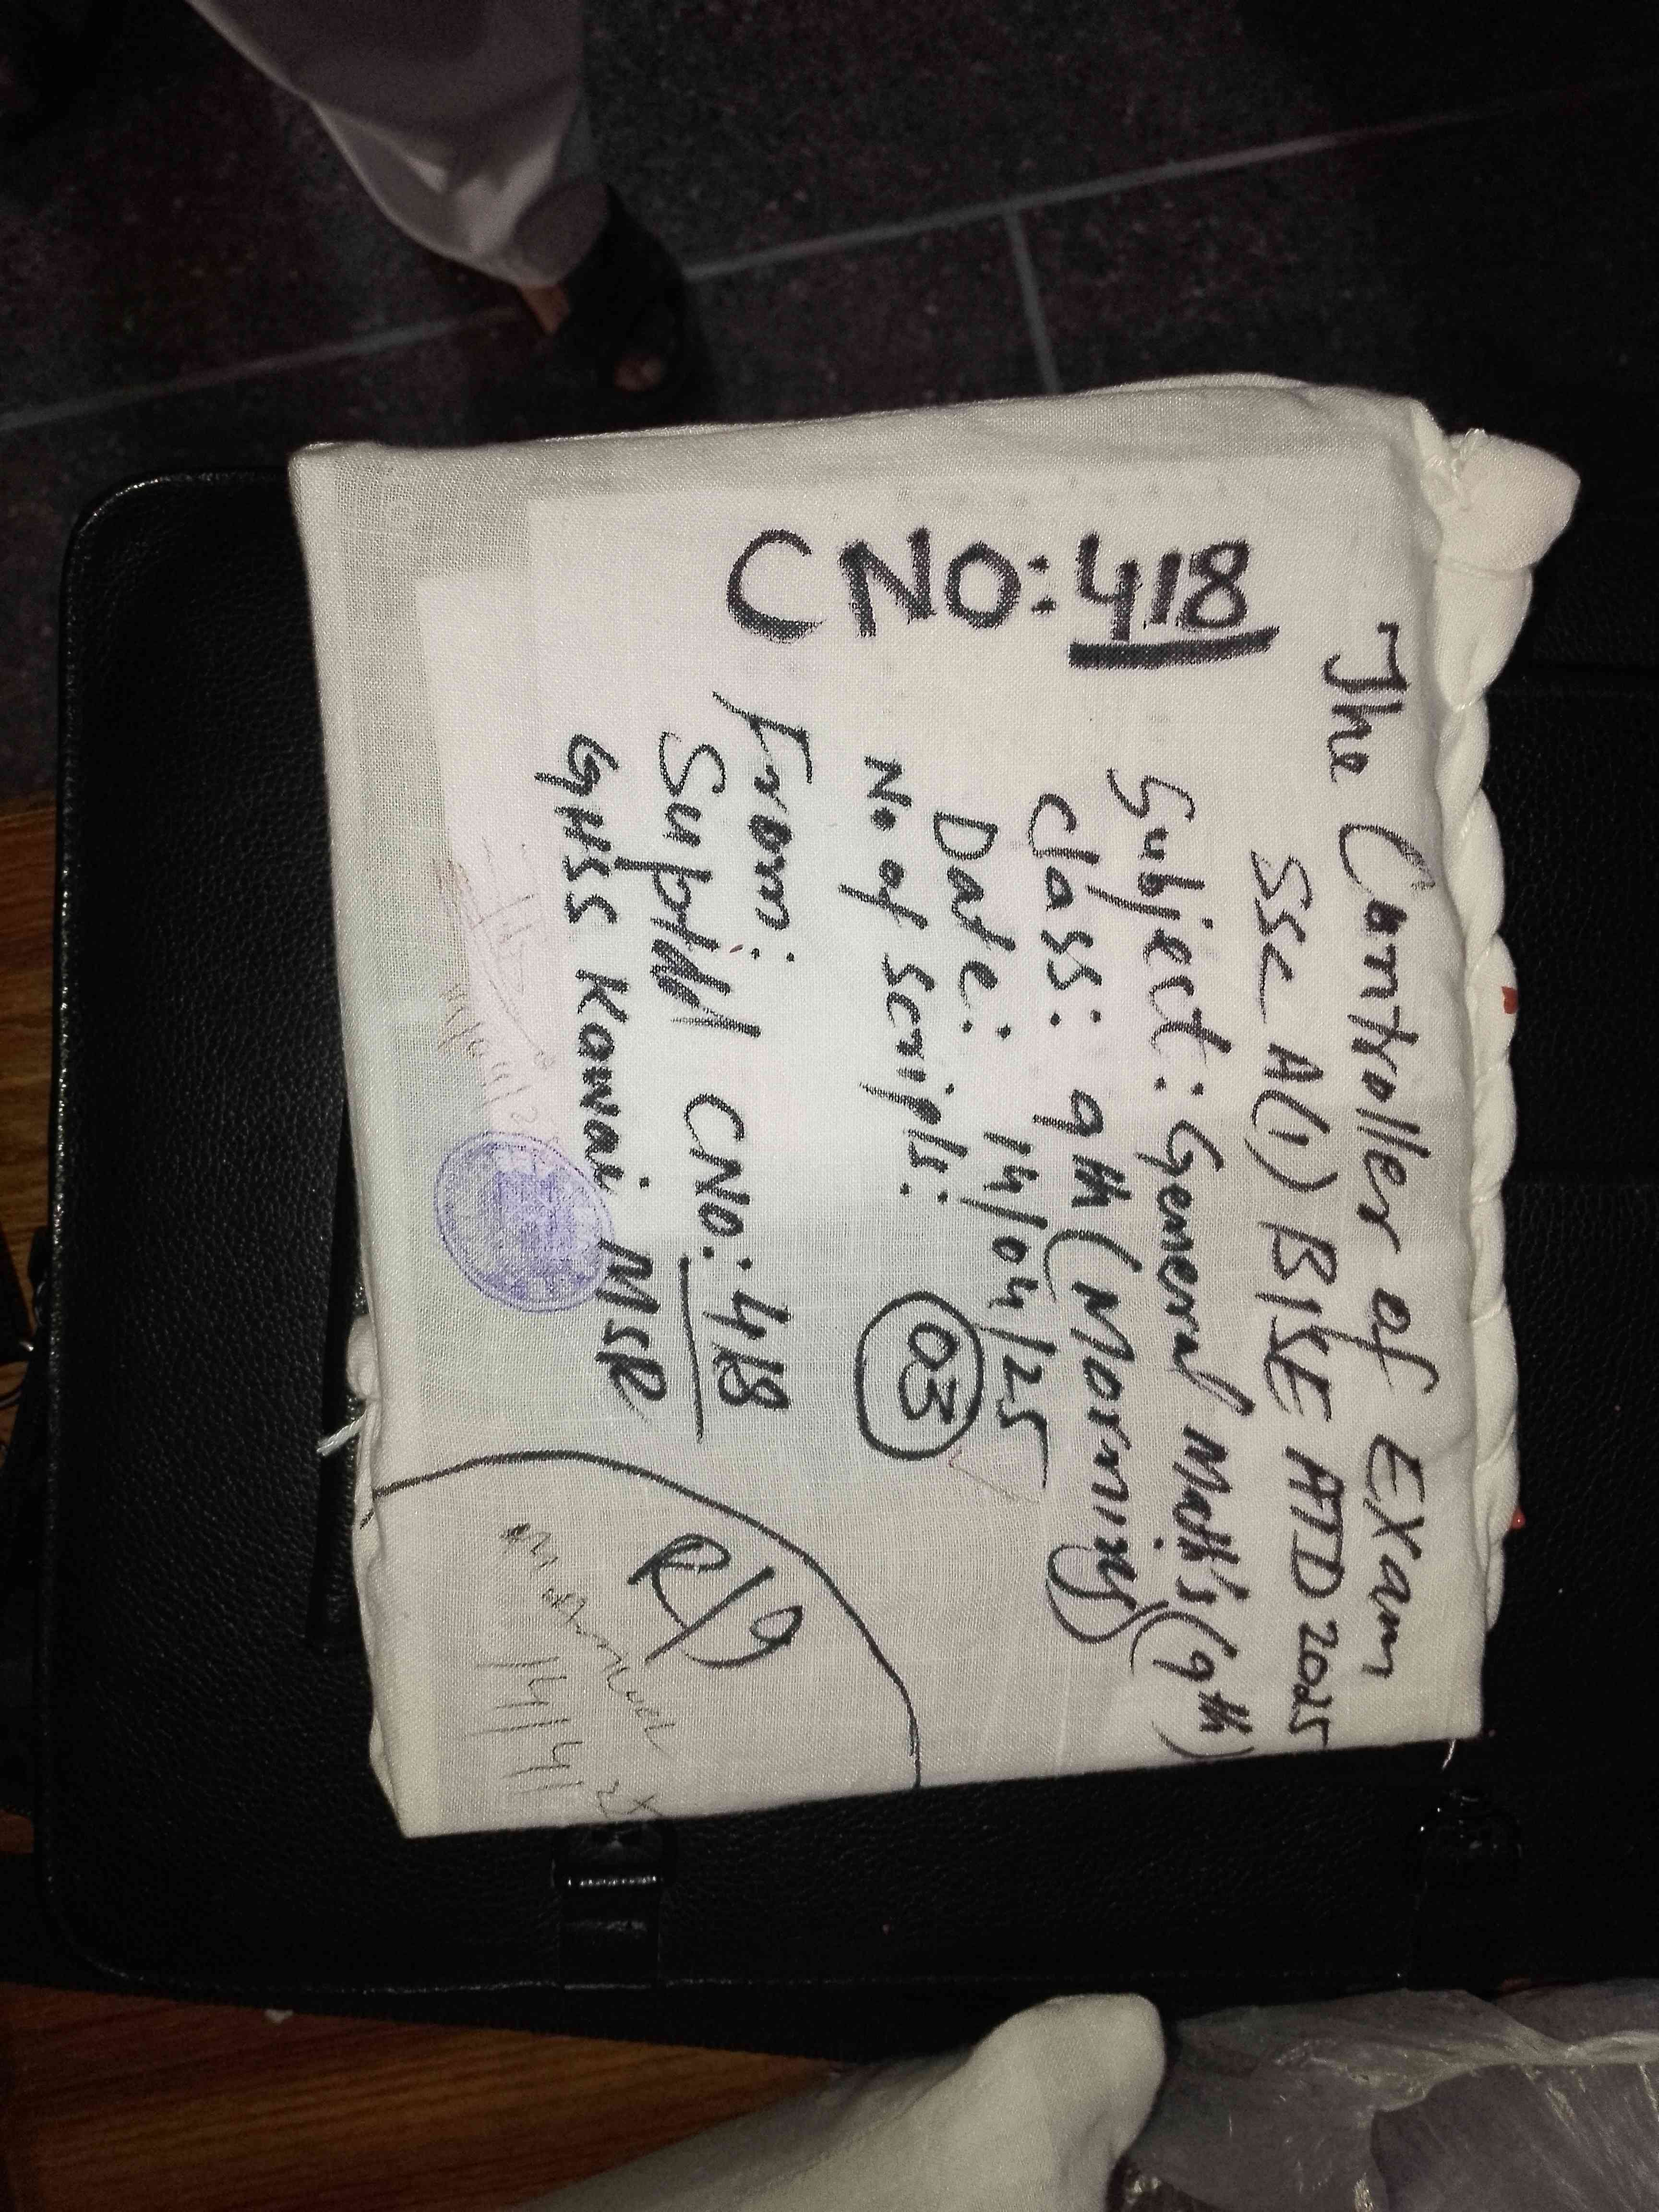 CNO: 418
The Controller of Exam
SSC A(1) BISE ATD 2025
Subject: General Math's (9th)
Class: 9th (Morning)
Date: 14/04/25
No of Scripts: 03
From:
Suptdd CNO: 418
GHSS Kawai MSR
R/9
14/4/25